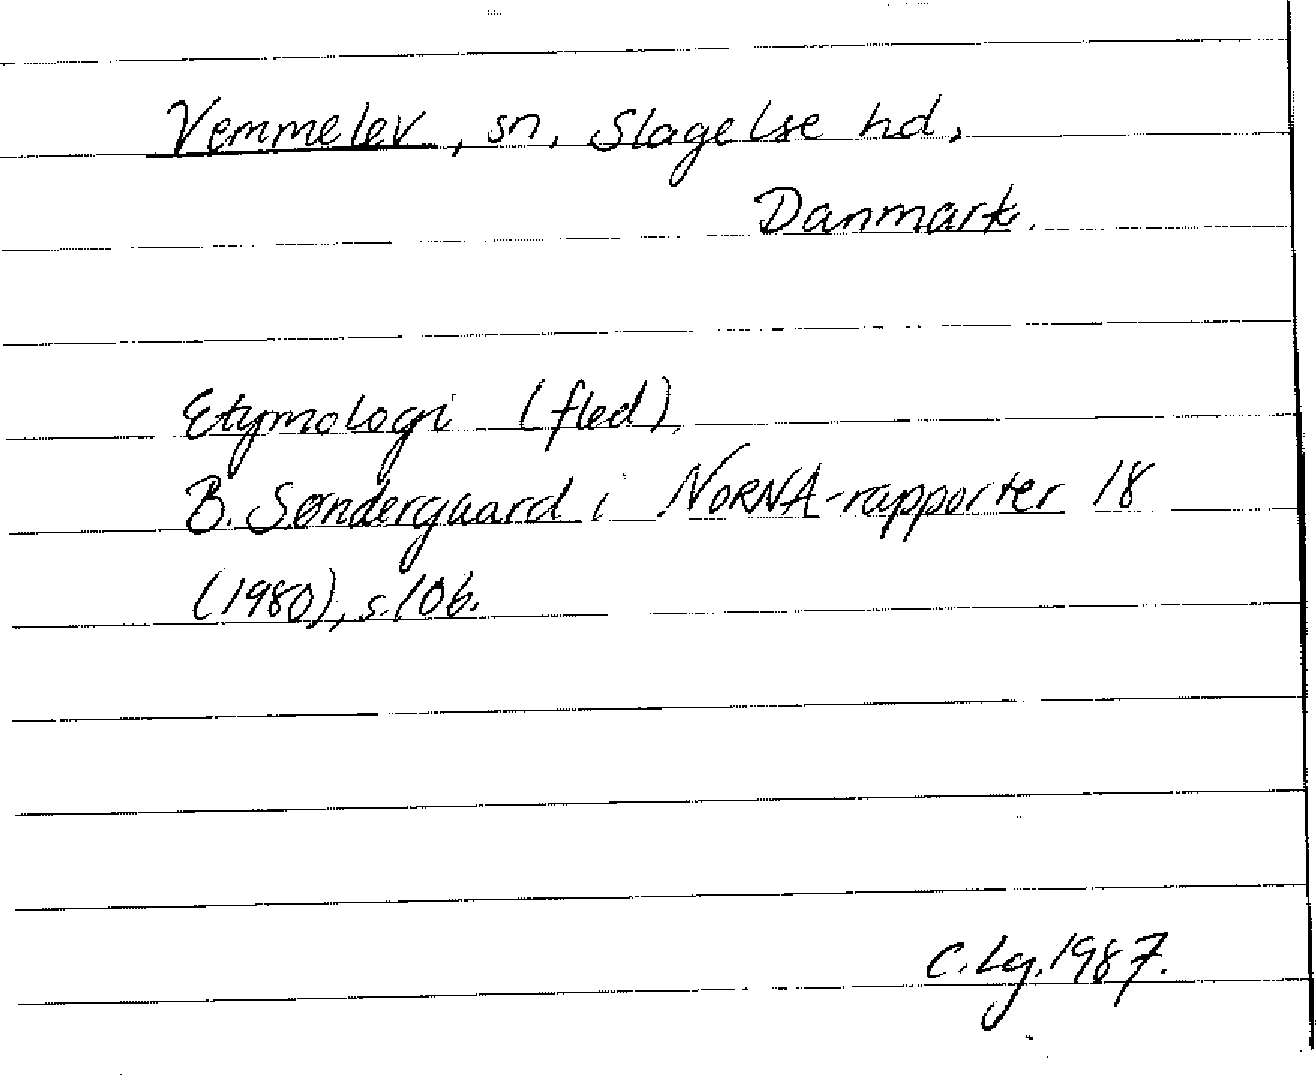 Vemmelev, sn, Slagelse hd,
Danmark.
Etymologi (fled)
B. Søndergaard i NORNA-rapporter 18
(1980), s. 106.
C. Lg. 1987.